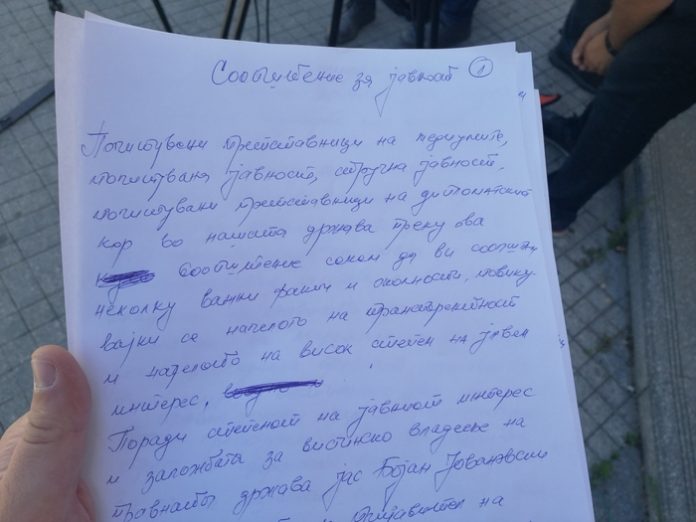 Сообштение за јавност 1
Почитувани претставници на медиумите,
почитувана јавност, стручна јавност,
почитувани претставници на дипломатскиот
кор во нашата држава преку ова
сообштение сакам да ви соопштам
неколку важни факти и околности, повику-
вајќи се начелото на транспарентност
и начелото на висок степен на јавен
интерес,
Поради степенот на јавниот интерес
и заложбата за вистинско владеење на
правната држава јас Бојан Јовановски
на